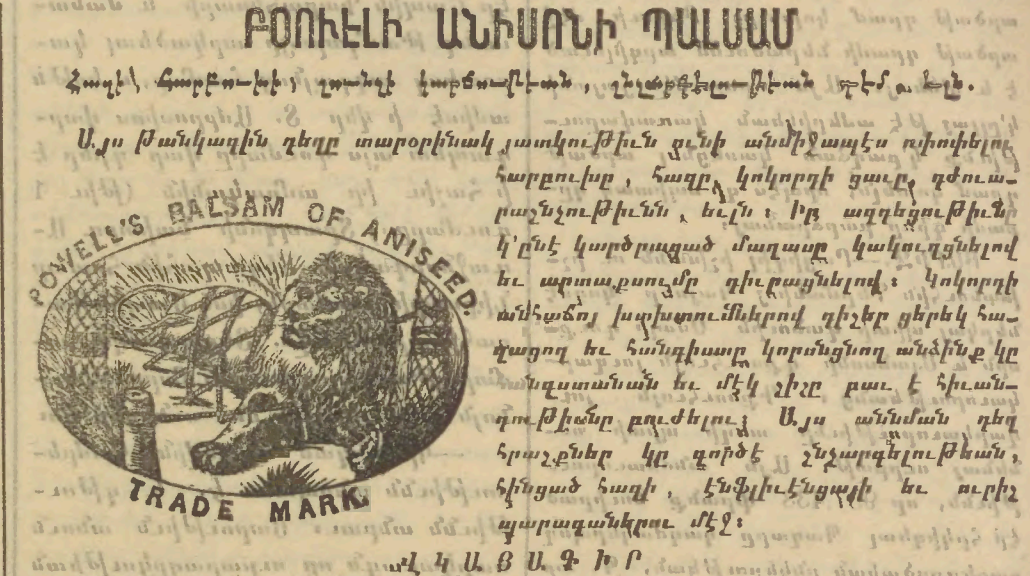 ԲՕՈՒԷԼԻ ԱՆԻՍՈՆԻ ՊԱԼՍԱՄ
Հազի, Հարբուխի,
Այս թանկագին դեղը տարօրինակ յատկութիւն ունի անմիջապէս ոփոփելու
հարբուխը, հազը, կոկորդի ցաւը, դժուա-
րաշնչութիւնն, եւլն։ Իր ազդեցութիւնը
կ՚ընէ կարծրացած մաղասը կակուղցնելով
եւ արտաքսումը դիւրացնելով։ Կոկորդի
անհաճոյ խտխտումներով գիշեր ցերեկ հա-
զացող եւ հանգիստը կորսնցնող անձինք կը
հանգստանան եւ մէկ շիշը բաւ է հիւան-
դութիւնը բուժելու։ Այս աննման դեղ
հրաշքներ կը գործէ շնչարգելութեան,
հինցած հազի, էնֆլիւէնցայի եւ ուրիշ
պարագաներու մէջ։
ՎԿԱՅԱԳԻՐ
POWELL'S BALSAM OF ANISEED.
TRADE MARK.